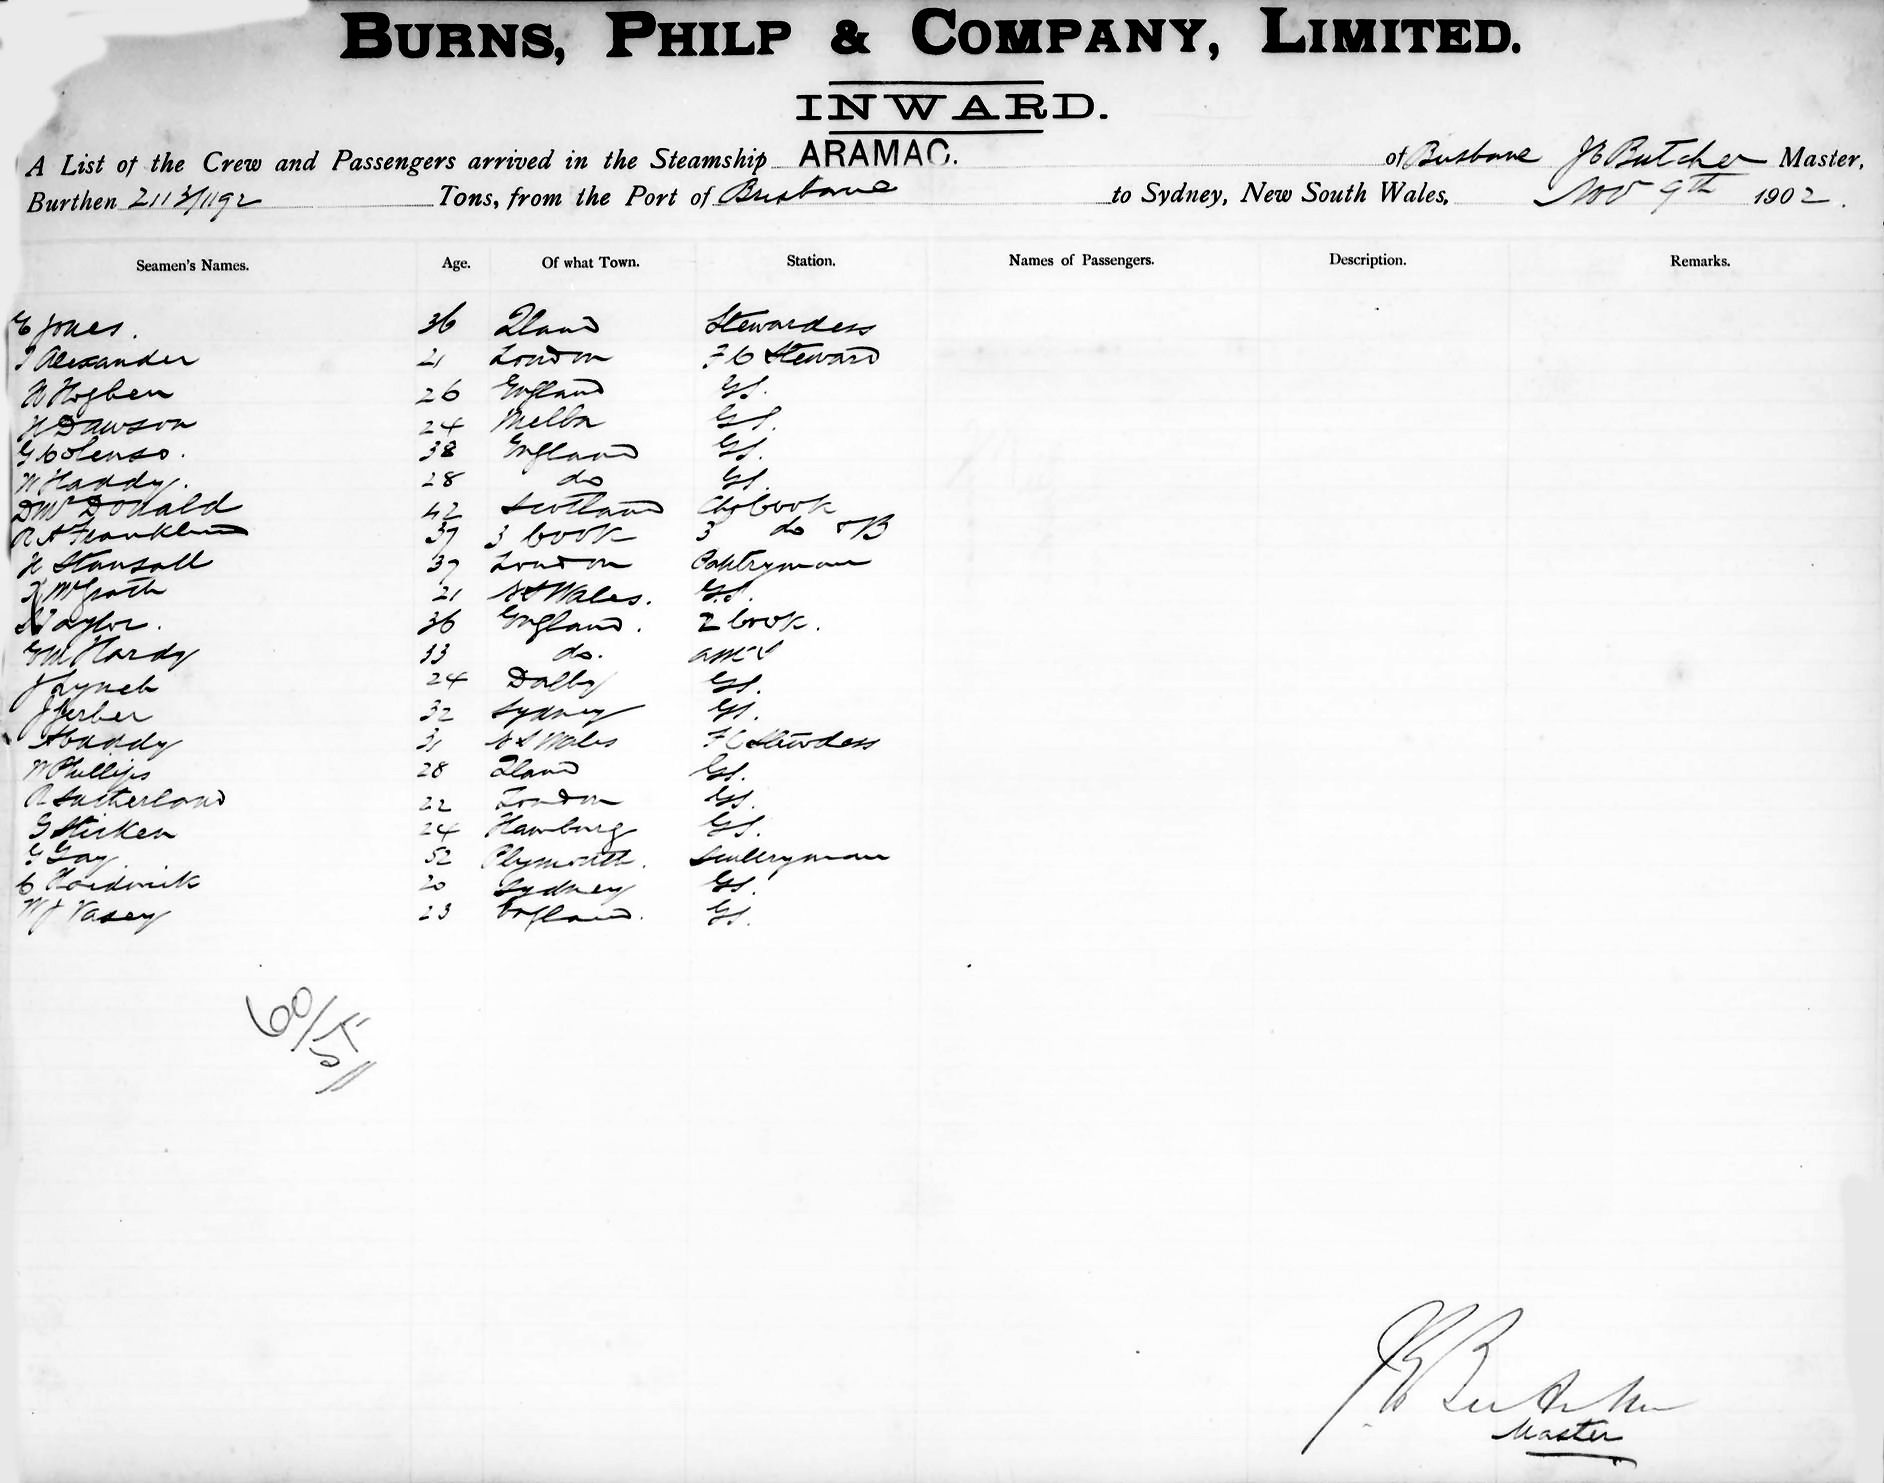 BURNS, PHILP & COMPANY, LIMITED.
INWARD.
A List of the Crew and Passengers arrived in the Steamship ARAMAC. of Brisbane J E Butcher Master,
Burthen 2113/1192 Tons, from the Port of Brisbane to Sydney, New South Wales, Nov 9th 1902.
Seamen's Names. Age. Of what Town. Station. Names of Passengers. Description. Remarks.
E Jones. 36 Qland Stewardess
Alexander 21 London F C Steward
H Hogben 26 England GS.
H Dawson 24 Melbn GS.
G Colenso. 38 England GS.
W Haddy. 28 do GS.
D McDonald 42 Scotland Chf Cook
R A Franklin 37 3 Cook 3 do & B
H Stansall 37 London Pantryman
McGrath 21 N S Wales. G.S.
Taylor. 36 England. 2 Cook.
Hardy 33 do.
J Lynch 24 Dalby GS.
J Gerber 32 Sydney GS.
A Caddy 31 N S Wales F C Stewdess
W Phillips 28 Qland GS.
R Sutherland 22 London GS.
G Stirken 24 Hamburg GS.
G Gay 52 Plymouth. Scullryman
C Hardwick 20 Sydney GS.
W J Vasey 23 England. GS.
60/51
J E Butcher
Master